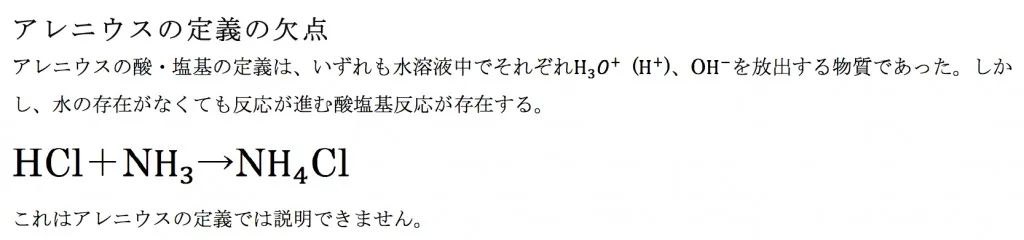 アレニウスの定義の欠点
アレニウスの酸・塩基の定義は、いずれも水溶液中でそれぞれH₃O⁺ (H⁺)、OH⁻を放出する物質であった。しか
し、水の存在がなくても反応が進む酸塩基反応が存在する。
HCl＋NH₃→NH₄Cl
これはアレニウスの定義では説明できません。